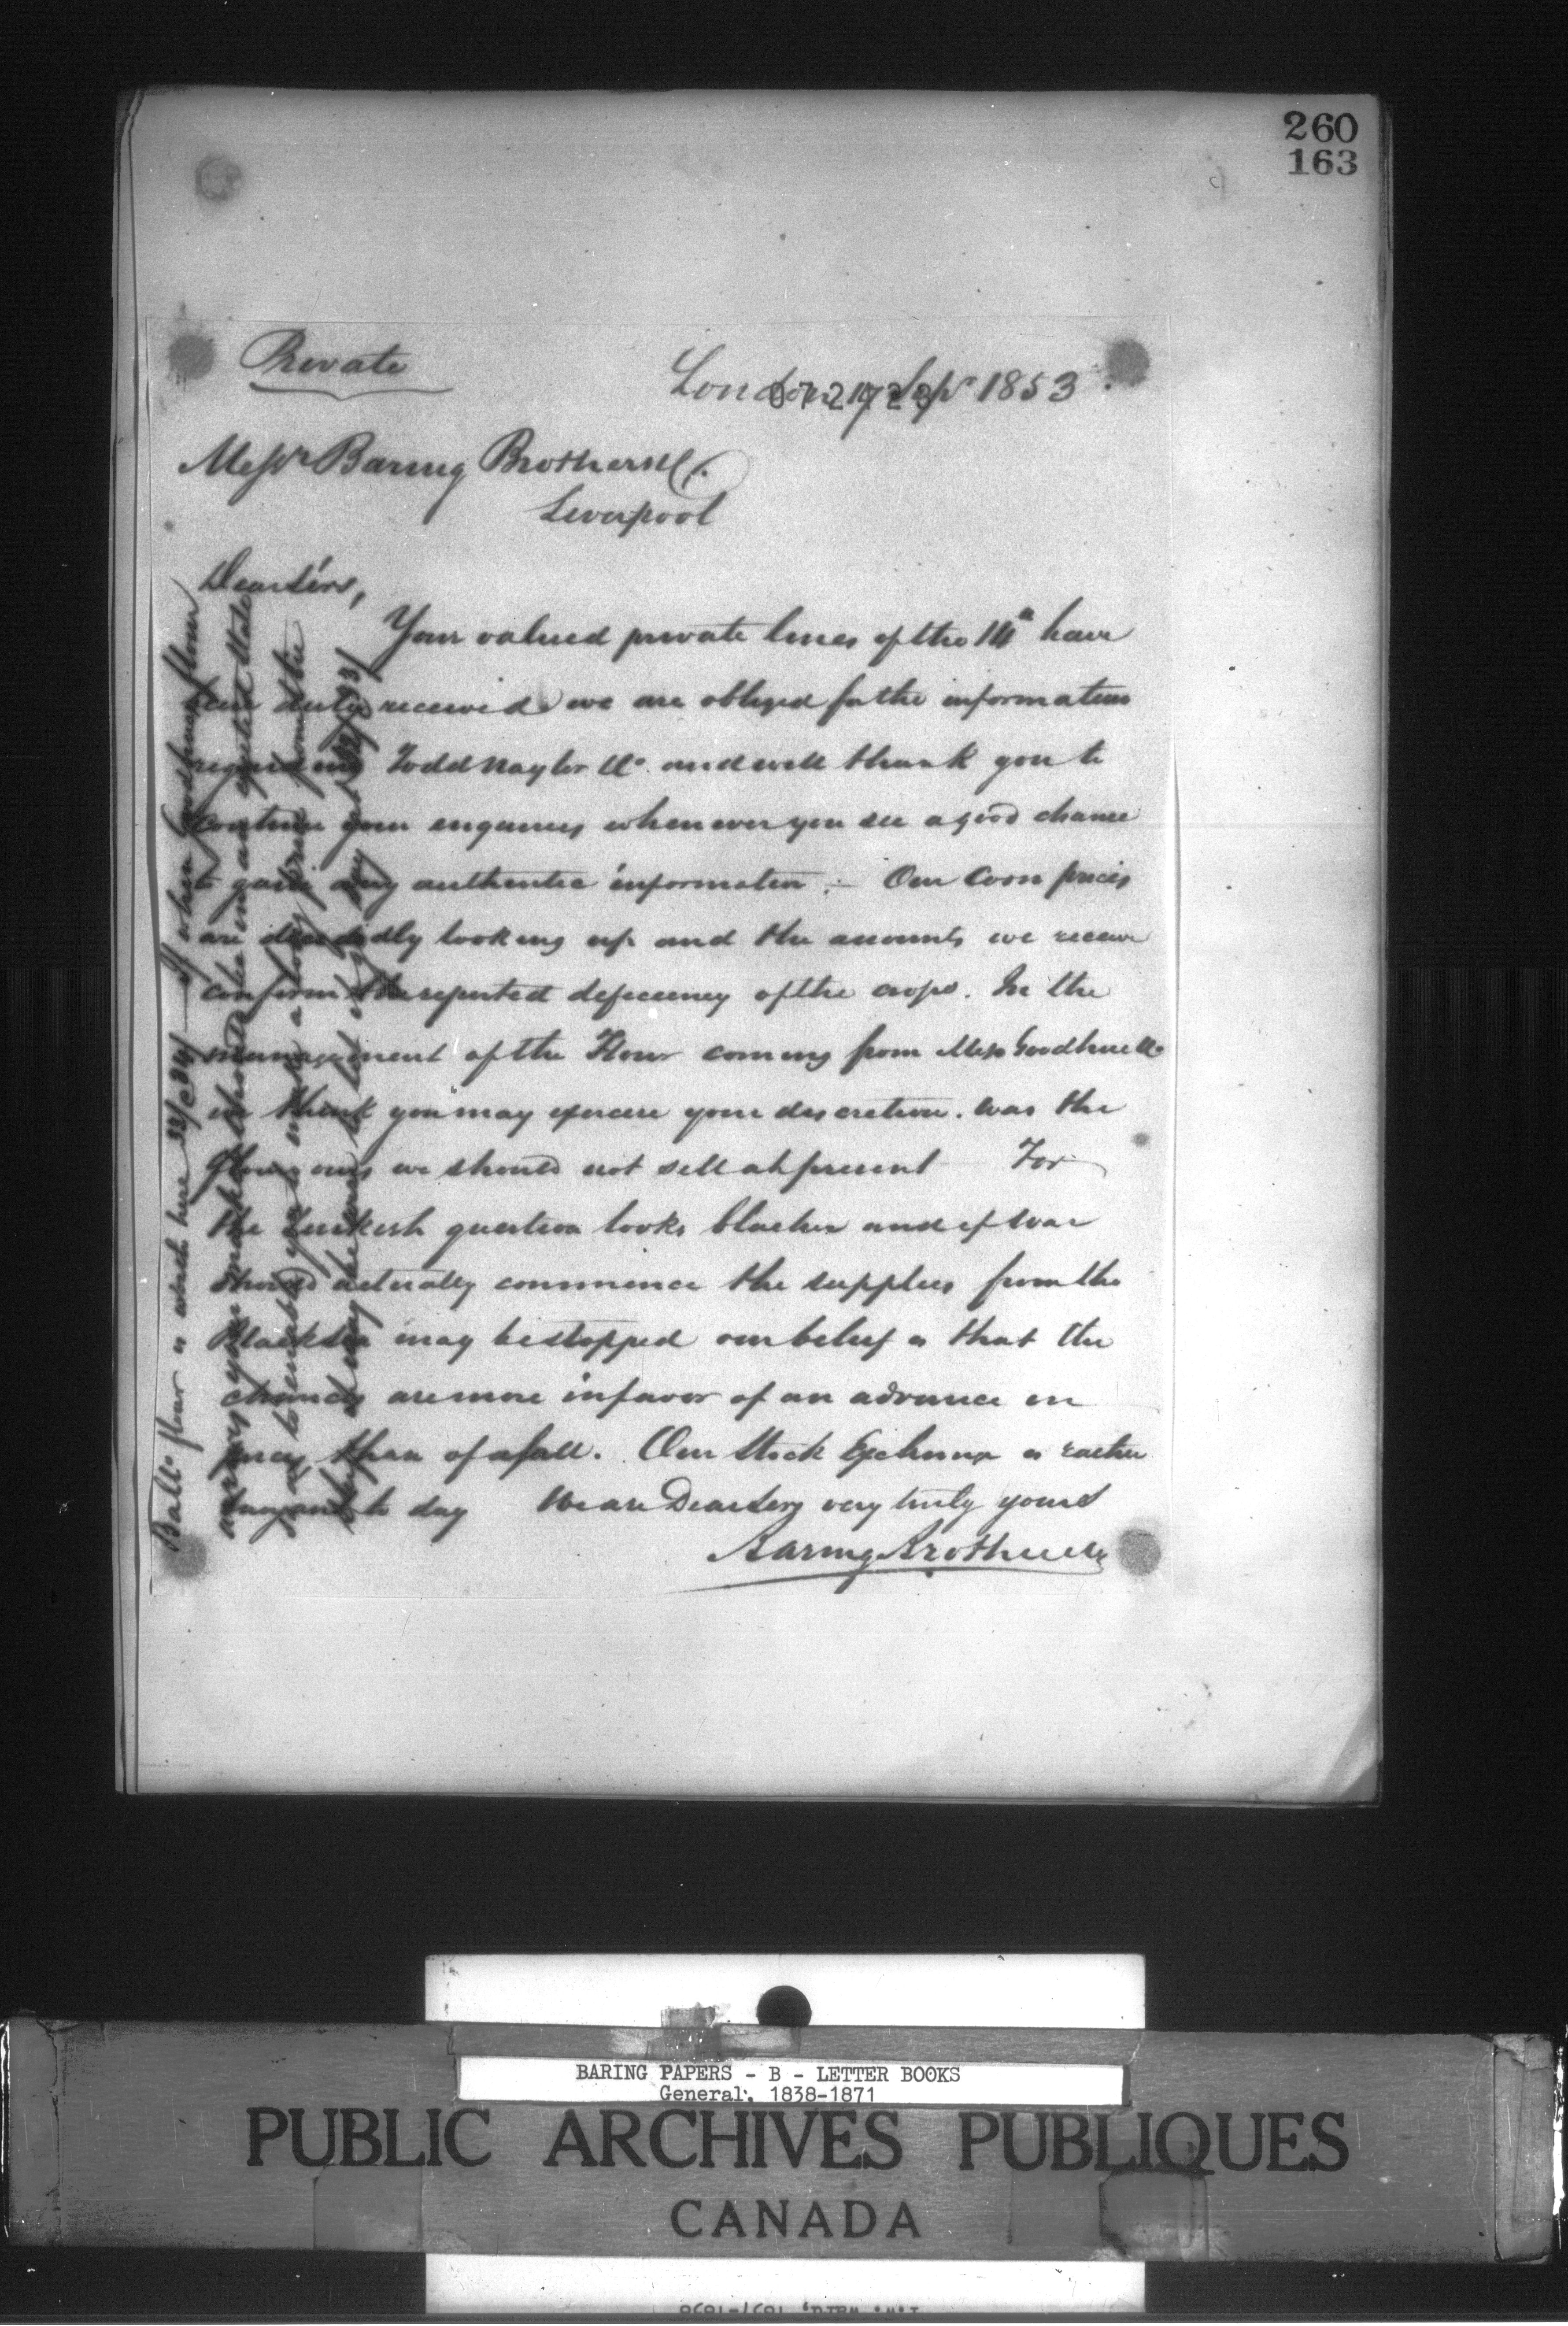 260
163
Private
London 17 Sepr 1853.
Messrs Baring Brothers & Co.
Liverpool
Dear Sirs,
Your valued private lines of the have
been duly received we are obliged for the information
regarding Todd Naylor & Co. and will thank you to
continue your enquiries whenever you see a good chance
to gain any authentic information. – Our Corn prices
are decidedly looking up and the accounts we receive
confirm the reported deficiency of the crops. In the
management of the Flour coming from Messrs Goodhue & Co
we think you may exercise your discretion. Was the
flour ours we should not sell at present For
the Turkish question looks blacker and if War
should actually commence the supplies from the
Black Sea may be stopped our belief is that the
chances are more in favor of an advance in
prices than of a fall. Our Stock Exchange is rather
stagnant to day We are Dear Sirs very truly yours
Baring Brothers & Co
Balto flour is worth here 33/ @ 34/ – If when Goodhues flour
arrives your market should be in an agitated state
so as to enable you to make a long price from the
32/ @ 33/
BARING PAPERS - B - LETTER BOOKS
General, 1838-1871
PUBLIC ARCHIVES PUBLIQUES
CANADA